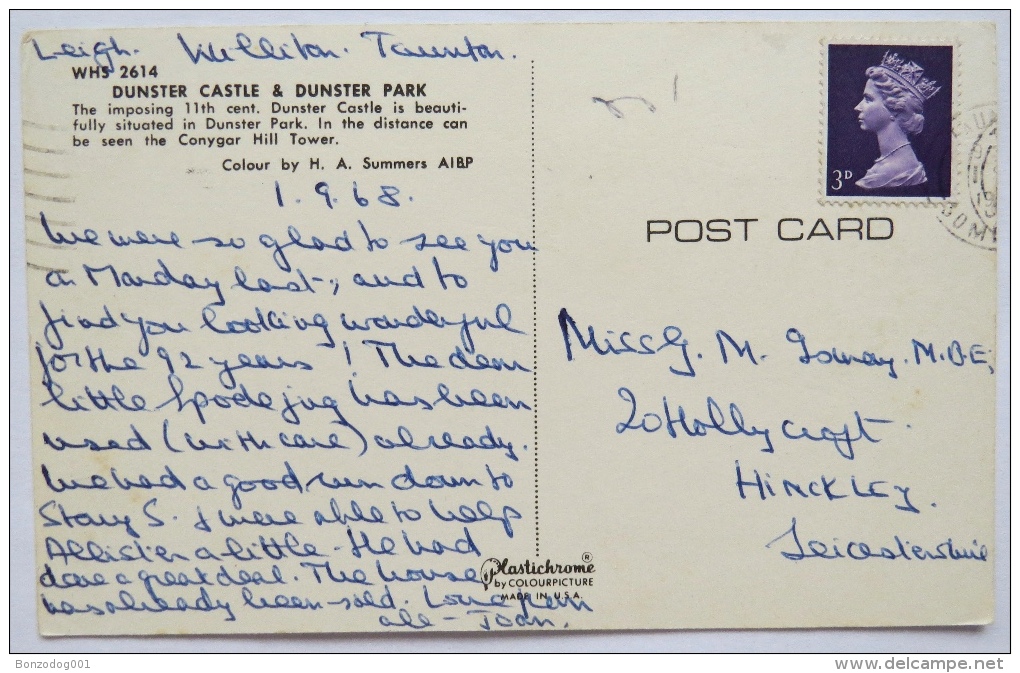 Leigh. Williton. Taunton.
WHS 2614
DUNSTER CASTLE & DUNSTER PARK
The imposing 11th cent. Dunster Castle is beauti-
fully situated in Dunster Park. In the distance can
be seen the Conygar Hill Tower.
Colour by H. A. Summers AIBP
1.9.68.
We were so glad to see you
on Monday last, and to
find you looking wonderful
for the 92 years! The dear
little Spode jug has been
used (with care) already.
We had a good run down to
S. & were able to help
Allister a little. He had
done a great deal. The house
has already been sold. Love from
all - Joan.
Plastichrome ®
by COLOURPICTURE
MADE IN U.S.A.
3D
POST CARD
Miss G. M. M.B.E.
20 Hollycroft.
HINCKLEY.
Leicestershire
Bonzodog001
www.delcampe.net